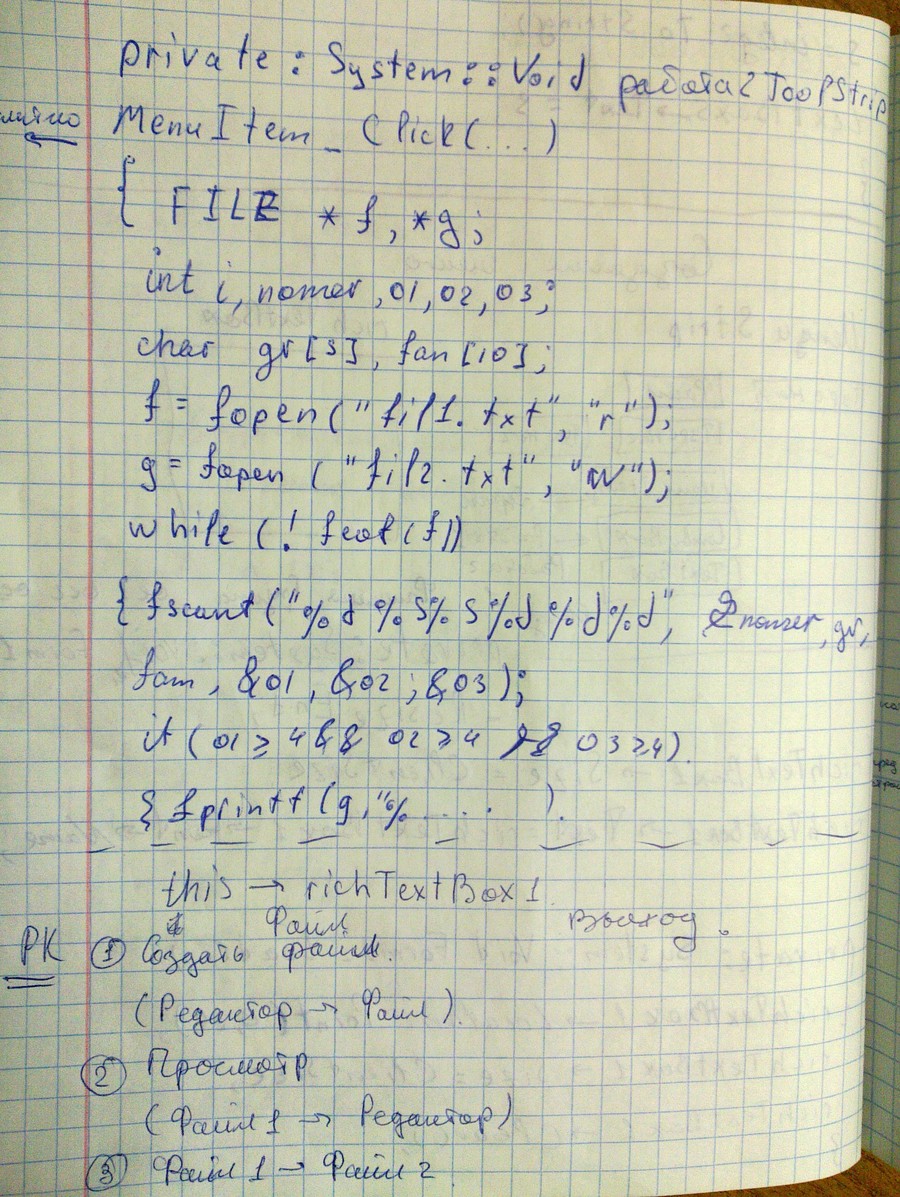 private : System :: Void работа2ToolStrip
MenuItem _ Click(...)
{ FILE *f, *g;
int i, nomer, o1, o2, o3;
char gr[5], fam[10];
f = fopen("fil1.txt", "r");
g = fopen ("fil2.txt", "w");
while (! feof(f))
{ fscanf("%d%s%s%d%d%d", &nomer, gr,
fam, &o1, &o2, &o3);
if (o1 ≥ 4 && o2 ≥ 4 && o3 ≥ 4).
{ fprintf(g,"%..... ).
this → richTextBox1.
Файл Выход.
РК ① Создать файл.
(Редактор → Файл).
② Просмотр
(Файл1 → Редактор)
③ Файл1 → Файл2